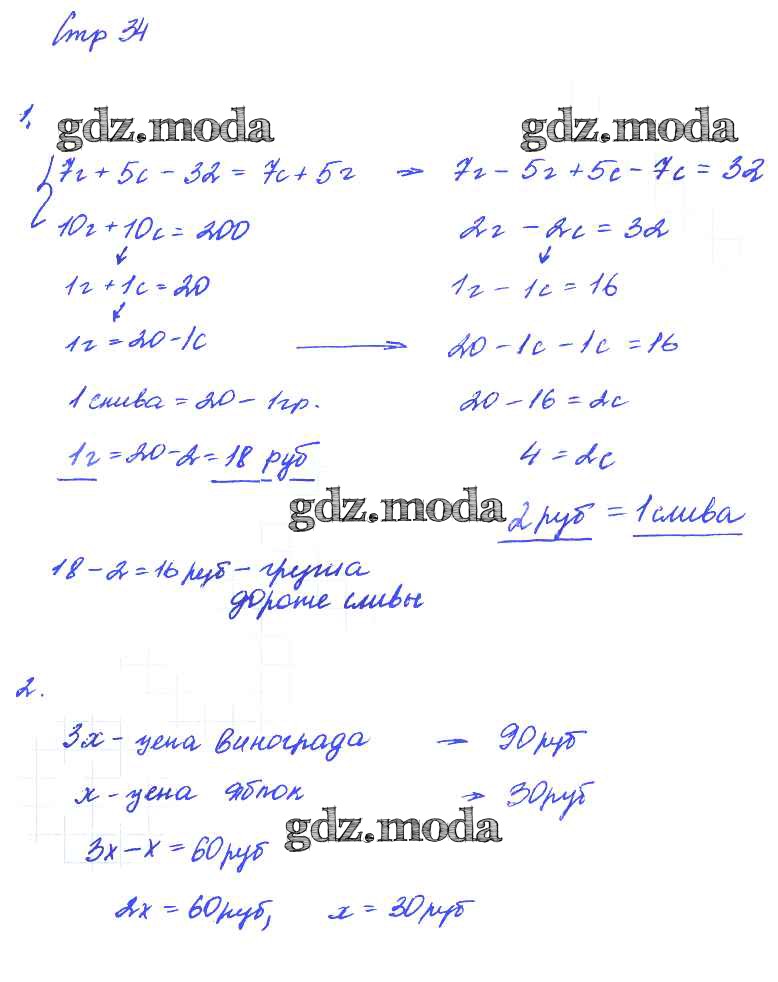 Стр 34
1.
gdz.moda gdz.moda
7г + 5с - 32 = 7с + 5г → 7г - 5г + 5с - 7с = 32
10г + 10с = 200 2г - 2с = 32
1г + 1с = 20 1г - 1с = 16
1г = 20 - 1с → 20 - 1с - 1с = 16
1 слива = 20 - 1гр. 20 - 16 = 2с
1г = 20 - 2 = 18 руб 4 = 2с
gdz.moda 2 руб = 1 слива
18 - 2 = 16 руб - груша
дороже сливы
2.
3х - цена винограда → 90 руб
х - цена яблок → 30 руб
gdz.moda
3х - х = 60 руб
2х = 60 руб, х = 30 руб